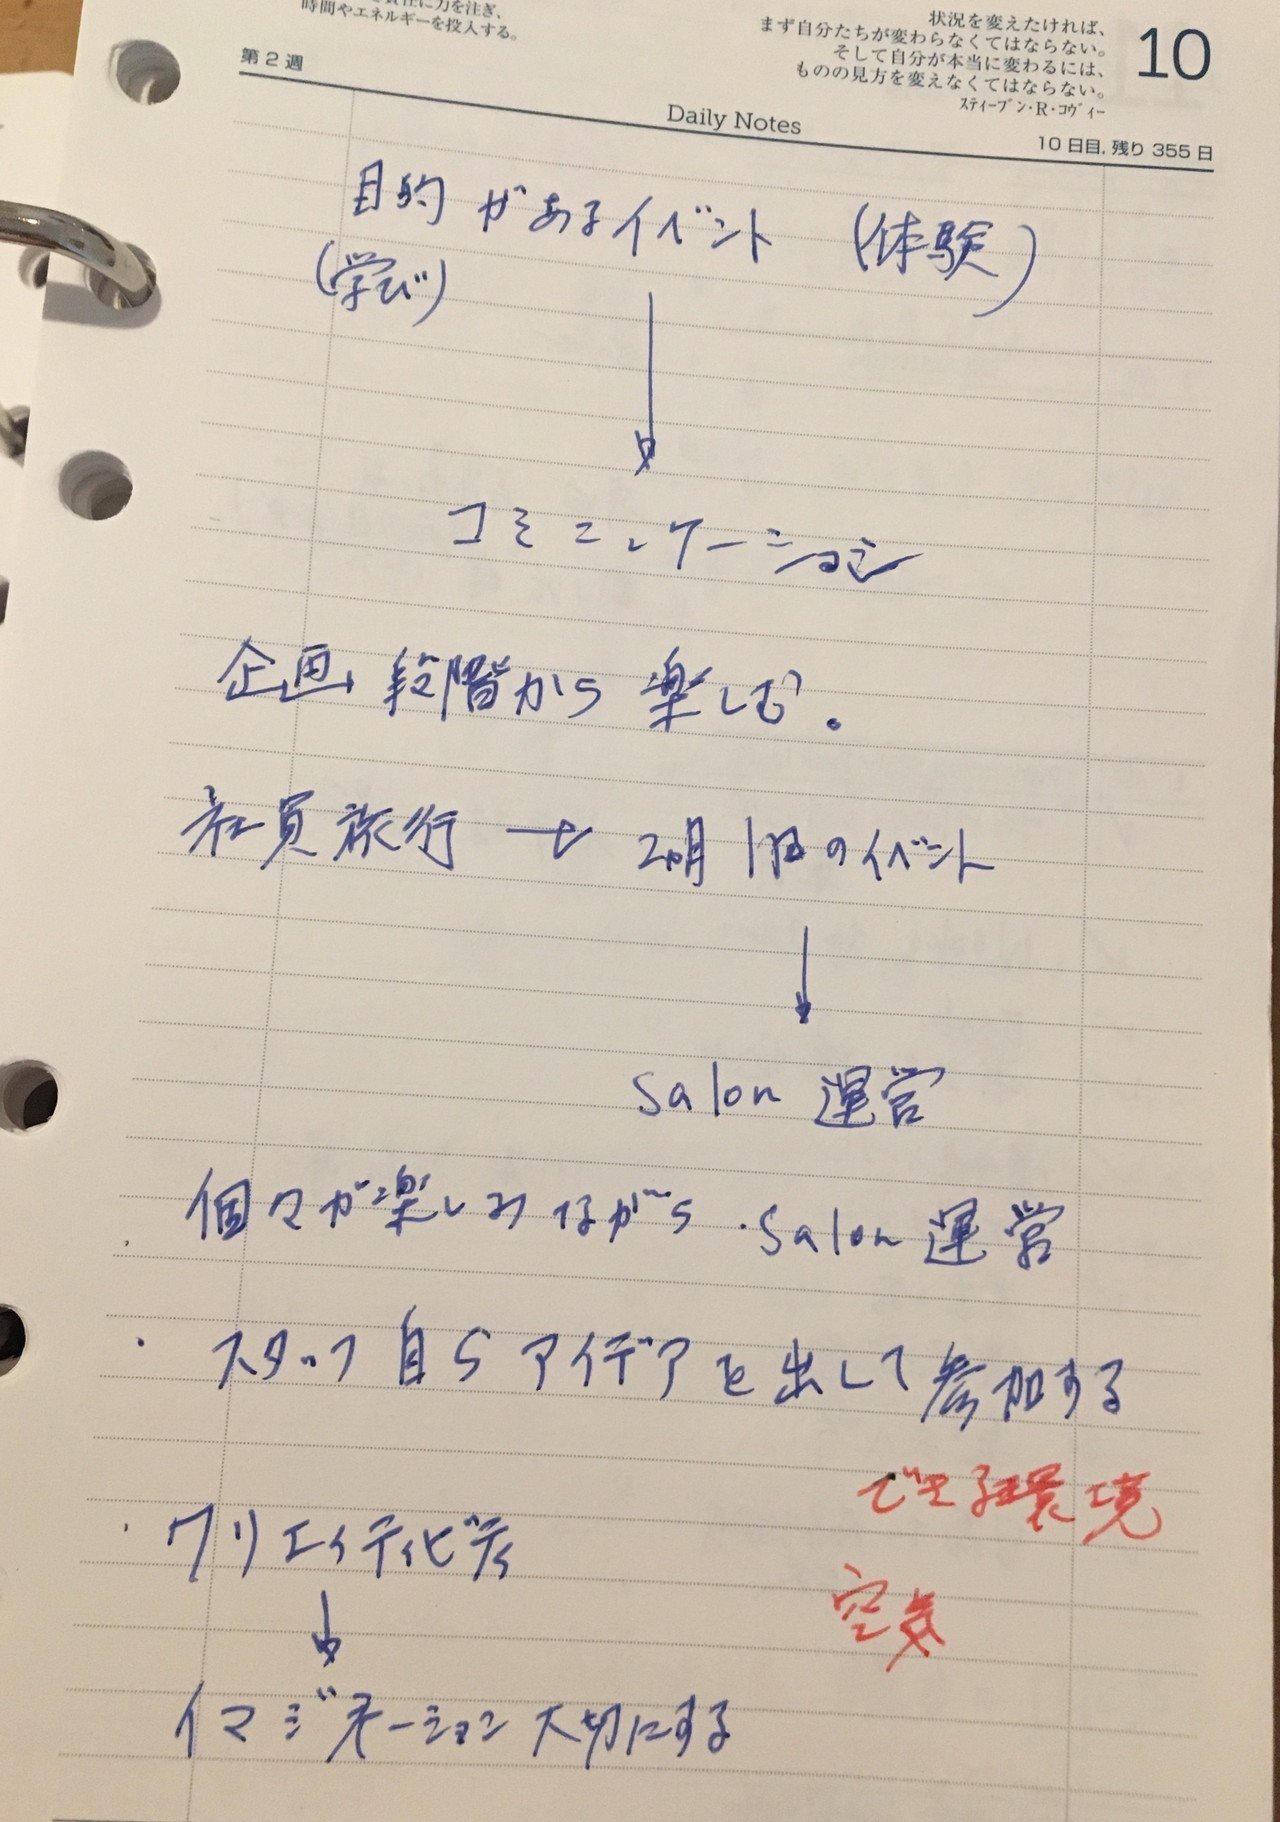 に力を注ぎ、
時間やエネルギーを投入する。
状況を変えたければ、
まず自分たちが変わらなくてはならない。
そして自分が本当に変わるには、
ものの見方を変えなくてはならない。
スティーブン・R・コヴィー
10
第2週
Daily Notes
10日目, 残り 355日
目的があるイベント (体験)
(学び)
↓
コミニュケーション
企画段階から楽しむ。
社員旅行 → 2ヵ月1回のイベント
↓
Salon 運営
個々が楽しみながら・Salon 運営
・スタッフ自らアイデアを出して参加する
できる環境
・クリエイティビティ
空気
↓
イマジネーション大切にする